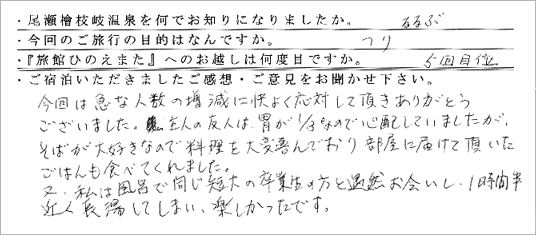 ・尾瀬檜枝岐温泉を何でお知りになりましたか。 るるぶ
・今回のご旅行の目的はなんですか。 つり
・『旅館ひのえまた』へのお越しは何度目ですか。 5回目位
・ご宿泊いただきましたご感想・ご意見をお聞かせ下さい。
今回は急な人数の増減に快よく応対して頂きありがとう
ございました。主人の友人は胃が1/3なので心配していましたが、
そばが大好きなので料理を大変喜んでおり部屋に届けて頂いた
ごはんも食べてくれました。
又、私は風呂で同じ短大の卒業生の方と偶然お会いし、1時間半
近く長湯してしまい、楽しかったです。